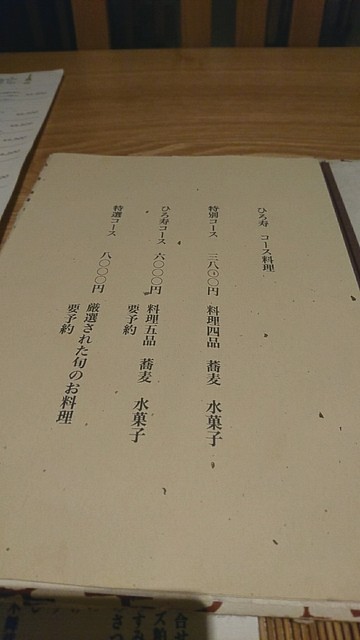 ひろ寿 コース料理
特別コース 三八〇〇円 料理四品 蕎麦 水菓子
ひろ寿コース 六〇〇〇円 料理五品 蕎麦 水菓子
要予約
特選コース 八〇〇〇円 厳選された旬のお料理
要予約